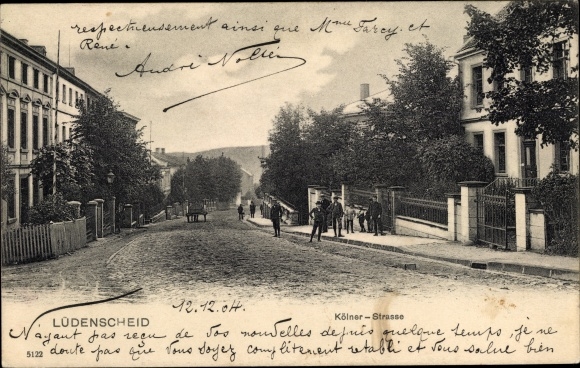 respectueusement ainsi que Mme Farcy et
René.
André
12.12.04.
LÜDENSCHEID
Kölner-Strasse
N'ayant pas reçu de vos nouvelles depuis quelque temps, je ne
5122
doute pas que vous soyez complitement retabli et vous salue bien